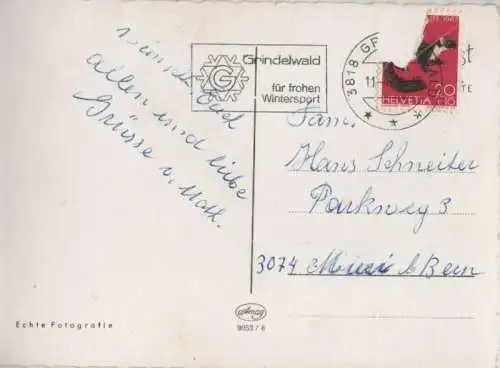 wünscht Euch
allen und liebe
Grüsse v. Math.
Grindelwald
für frohen
Wintersport
G
3818 GR
11
HELVETIA
20
+10
Fam.
Hans Schneiter
Parkweg 3
3074 Muri b/Bern
Echte Fotografie
9053/6